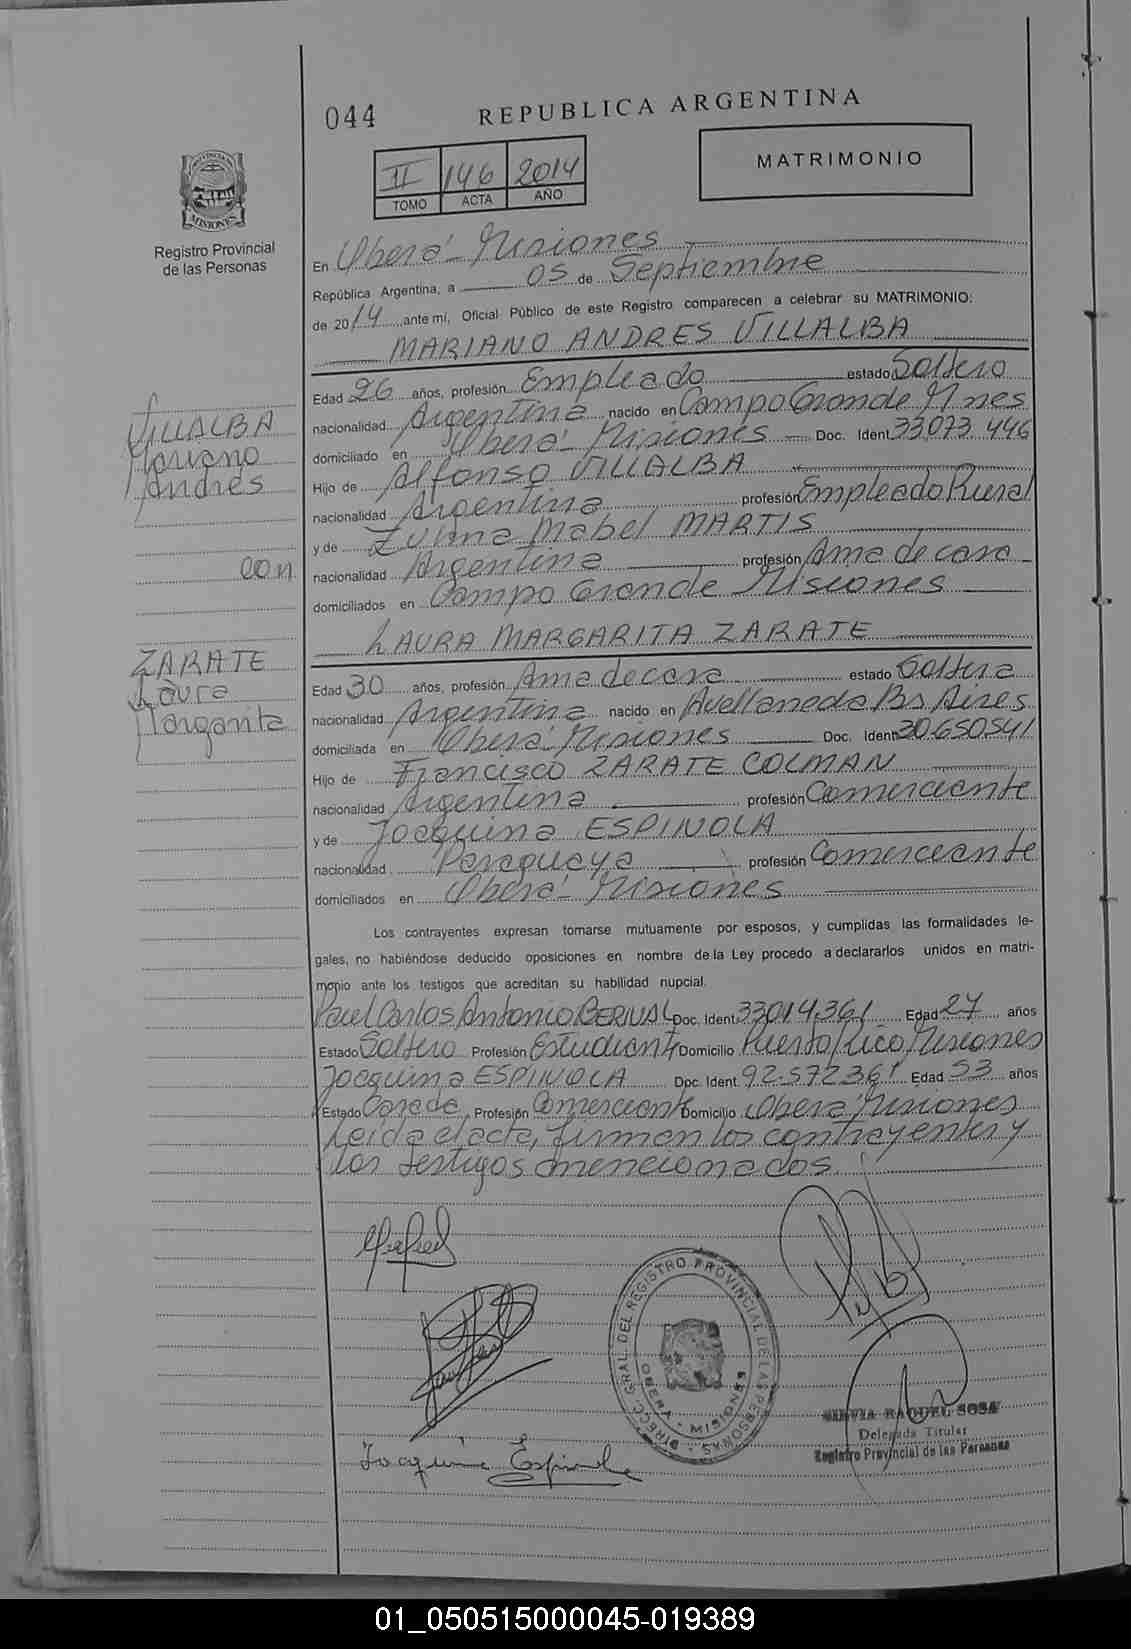 044
REPUBLICA ARGENTINA
MATRIMONIO
II 146 2014
TOMO ACTA AÑO
MISIONES
Registro Provincial
de las Personas
En Oberá - Misiones
República Argentina, a 05 de Septiembre
de 2014 ante mí, Oficial Público de este Registro comparecen a celebrar su MATRIMONIO:
MARIANO ANDRES VILLALBA
Edad 26 años, profesión Empleado estado Soltero
nacionalidad Argentina nacido en Campo Grande Mnes
domiciliado en Oberá - Misiones Doc. Ident 33.073.446
Hijo de Alfonso VILLALBA
nacionalidad Argentina profesión Empleado Rural
y de Zulma Mabel MARTIS
nacionalidad Argentina profesión Ama de casa
domiciliados en Campo Grande Misiones
VILLALBA
Mariano
Andrés
con
ZARATE
Laura
Margarita
LAURA MARGARITA ZARATE
Edad 30 años, profesión Ama de casa estado Soltera
nacionalidad Argentina nacido en Avellaneda Bs Aires
domiciliada en Oberá - Misiones Doc. Ident 30.650.541
Hijo de Francisco ZARATE COLMAN
nacionalidad Argentina profesión Comerciante
y de Joaquina ESPINOLA
nacionalidad Paraguaya profesión Comerciante
domiciliados en Oberá - Misiones
Los contrayentes expresan tomarse mutuamente por esposos, y cumplidas las formalidades le-
gales, no habiéndose deducido oposiciones en nombre de la Ley procedo a declararlos unidos en matri-
monio ante los testigos que acreditan su habilidad nupcial.
Paul Carlos Antonio BERNAL Doc. Ident. 33.014.361 Edad 27 años
Estado Soltero Profesión Estudiante Domicilio Puerto Rico, Misiones
Joaquina ESPINOLA Doc. Ident. 92.572.361 Edad 53 años
Estado Casada Profesión Comerciante Domicilio Oberá Misiones
Leida el acta, firman los contrayentes y
los testigos mencionados
DIRECC. GRAL. DEL REGISTRO PROVINCIAL DE LAS PERSONAS
OBERA - MISIONES
SILVIA RAQUEL SOSA
Delegada Titular
Registro Provincial de las Personas
Joaquina Espinola
01_050515000045-019389